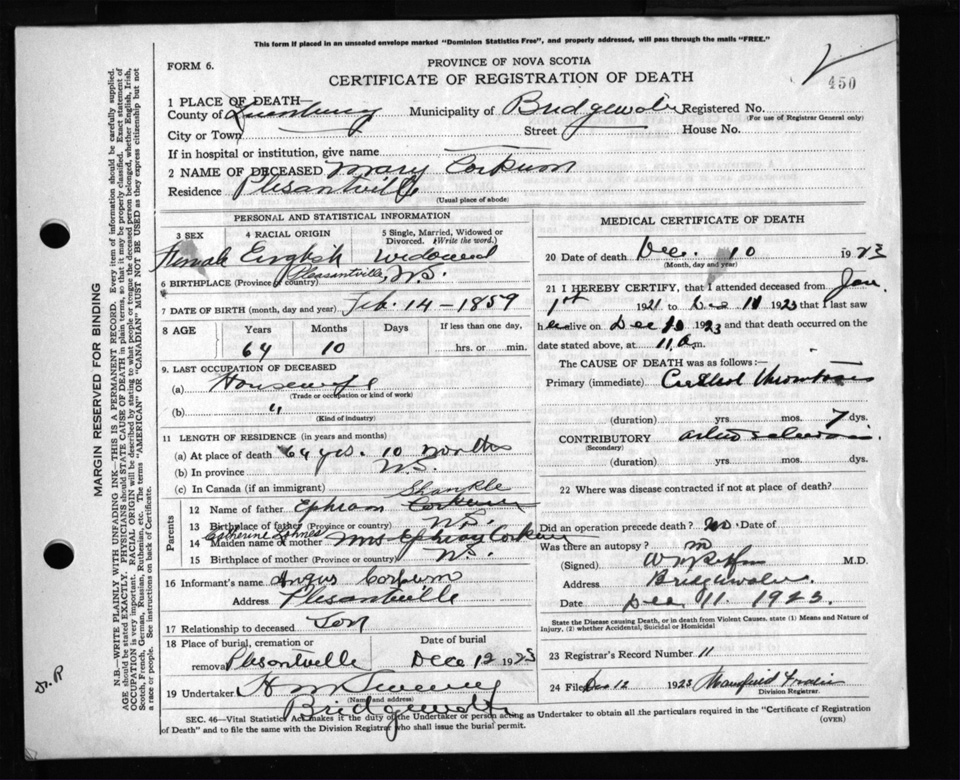 This form if placed in an unsealed envelope marked "Dominion Statistics Free", and properly addressed, will pass through the mails "FREE."
FORM 6.
PROVINCE OF NOVA SCOTIA
CERTIFICATE OF REGISTRATION OF DEATH
450
1 PLACE OF DEATH—
County of Lunenburg Municipality of Bridgewater Registered No.
(For use of Registrar General only)
City or Town Street House No.
If in hospital or institution, give name
2 NAME OF DECEASED Mary Corkum
Residence Plesantville
(Usual place of abode)
PERSONAL AND STATISTICAL INFORMATION
3 SEX 4 RACIAL ORIGIN 5 Single, Married, Widowed or Divorced. (Write the word.)
Female English Widowed
Pleasantville, N.S.
6 BIRTHPLACE (Province or country)
7 DATE OF BIRTH (month, day and year) Feb. 14 - 1859
8 AGE Years Months Days If less than one day,
64 10 hrs. or min.
9. LAST OCCUPATION OF DECEASED
(a) Housewife
(Trade or occupation or kind of work)
(b) "
(Kind of industry)
11 LENGTH OF RESIDENCE (in years and months)
(a) At place of death 64 yrs. 10 months
(b) In province N.S.
(c) In Canada (if an immigrant)
Shankle
Parents
12 Name of father Ephraim Corkum
13 Birthplace of father (Province or country) N.S.
Catherine Lohnes
14 Maiden name of mother Mrs Ephraim Corkum
15 Birthplace of mother (Province or country) N.S.
16 Informant's name Angus Corkum
Address Plesantville
17 Relationship to deceased Son
18 Place of burial, cremation or removal Plesantville
Date of burial
Dec 12 1923
19 Undertaker
(Name and address)
Bridgewater
MEDICAL CERTIFICATE OF DEATH
20 Date of death Dec. 10 1923
(Month, day and year)
21 I HEREBY CERTIFY, that I attended deceased from Jan.
1st 1921 to Dec 11 1923 that I last saw
her alive on Dec 10 1923 and that death occurred on
date stated above, at 11 a.m.
The CAUSE OF DEATH was as follows:—
Primary (immediate) Cerebral Thrombosis
(duration) yrs mos. 7 dys.
CONTRIBUTORY arterio sclerosis.
(Secondary)
(duration) yrs. mos. dys.
22 Where was disease contracted if not at place of death?
Did an operation precede death? no. Date of
Was there an autopsy? no
(Signed) M.D.
Address Bridgewater.
Date Dec. 11. 1923.
State the Disease causing Death, or in death from Violent Causes, state (1) Means and Nature of Injury, (2) whether Accidental, Suicidal or Homicidal
23 Registrar's Record Number 11
24 Filed Dec 12 1923
Division Registrar.
SEC. 46—Vital Statistics Act makes it the duty of the Undertaker or person acting as Undertaker to obtain all the particulars required in the "Certificate of Registration
of Death" and to file the same with the Division Registrar who shall issue the burial permit.
(OVER)
MARGIN RESERVED FOR BINDING
N.B.—WRITE PLAINLY WITH UNFADING INK—THIS IS A PERMANENT RECORD. Every item of information should be carefully supplied.
AGE should be stated EXACTLY. PHYSICIANS should STATE CAUSE OF DEATH in plain terms, so that it may be properly classified. Exact statement of
OCCUPATION is very important. RACIAL ORIGIN will be described by stating to what people or tongue the deceased person belonged, whether English, Irish,
Scotch, French, German, Russian, Ruthenian, etc. The terms "AMERICAN" OR "CANADIAN" MUST NOT BE USED as they express citizenship but not
a race or people. See instructions on back of Certificate.